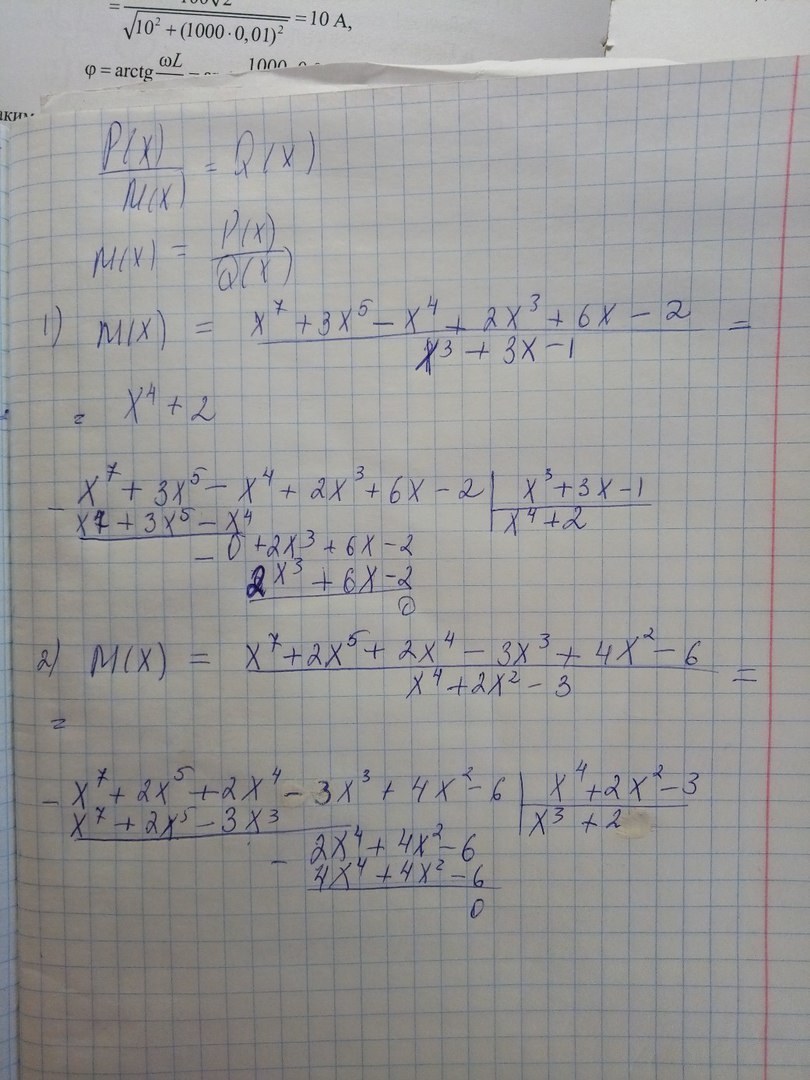 = 100√2 / √(10² + (1000·0,01)²) = 10 А,
φ = arctg ωL
1000
P(x) / M(x) = Q(x)
M(x) = P(x) / Q(x)
1) M(x) = (x⁷ + 3x⁵ − x⁴ + 2x³ + 6x − 2) / (x³ + 3x − 1) =
= x⁴ + 2
− x⁷ + 3x⁵ − x⁴ + 2x³ + 6x − 2 | x³ + 3x − 1
x⁷ + 3x⁵ − x⁴ | x⁴ + 2
− 0 + 2x³ + 6x − 2
2x³ + 6x − 2
0
2) M(x) = (x⁷ + 2x⁵ + 2x⁴ − 3x³ + 4x² − 6) / (x⁴ + 2x² − 3) =
=
− x⁷ + 2x⁵ + 2x⁴ − 3x³ + 4x² − 6 | x⁴ + 2x² − 3
x⁷ + 2x⁵ − 3x³ | x³ + 2
− 2x⁴ + 4x² − 6
4x⁴ + 4x² − 6
0